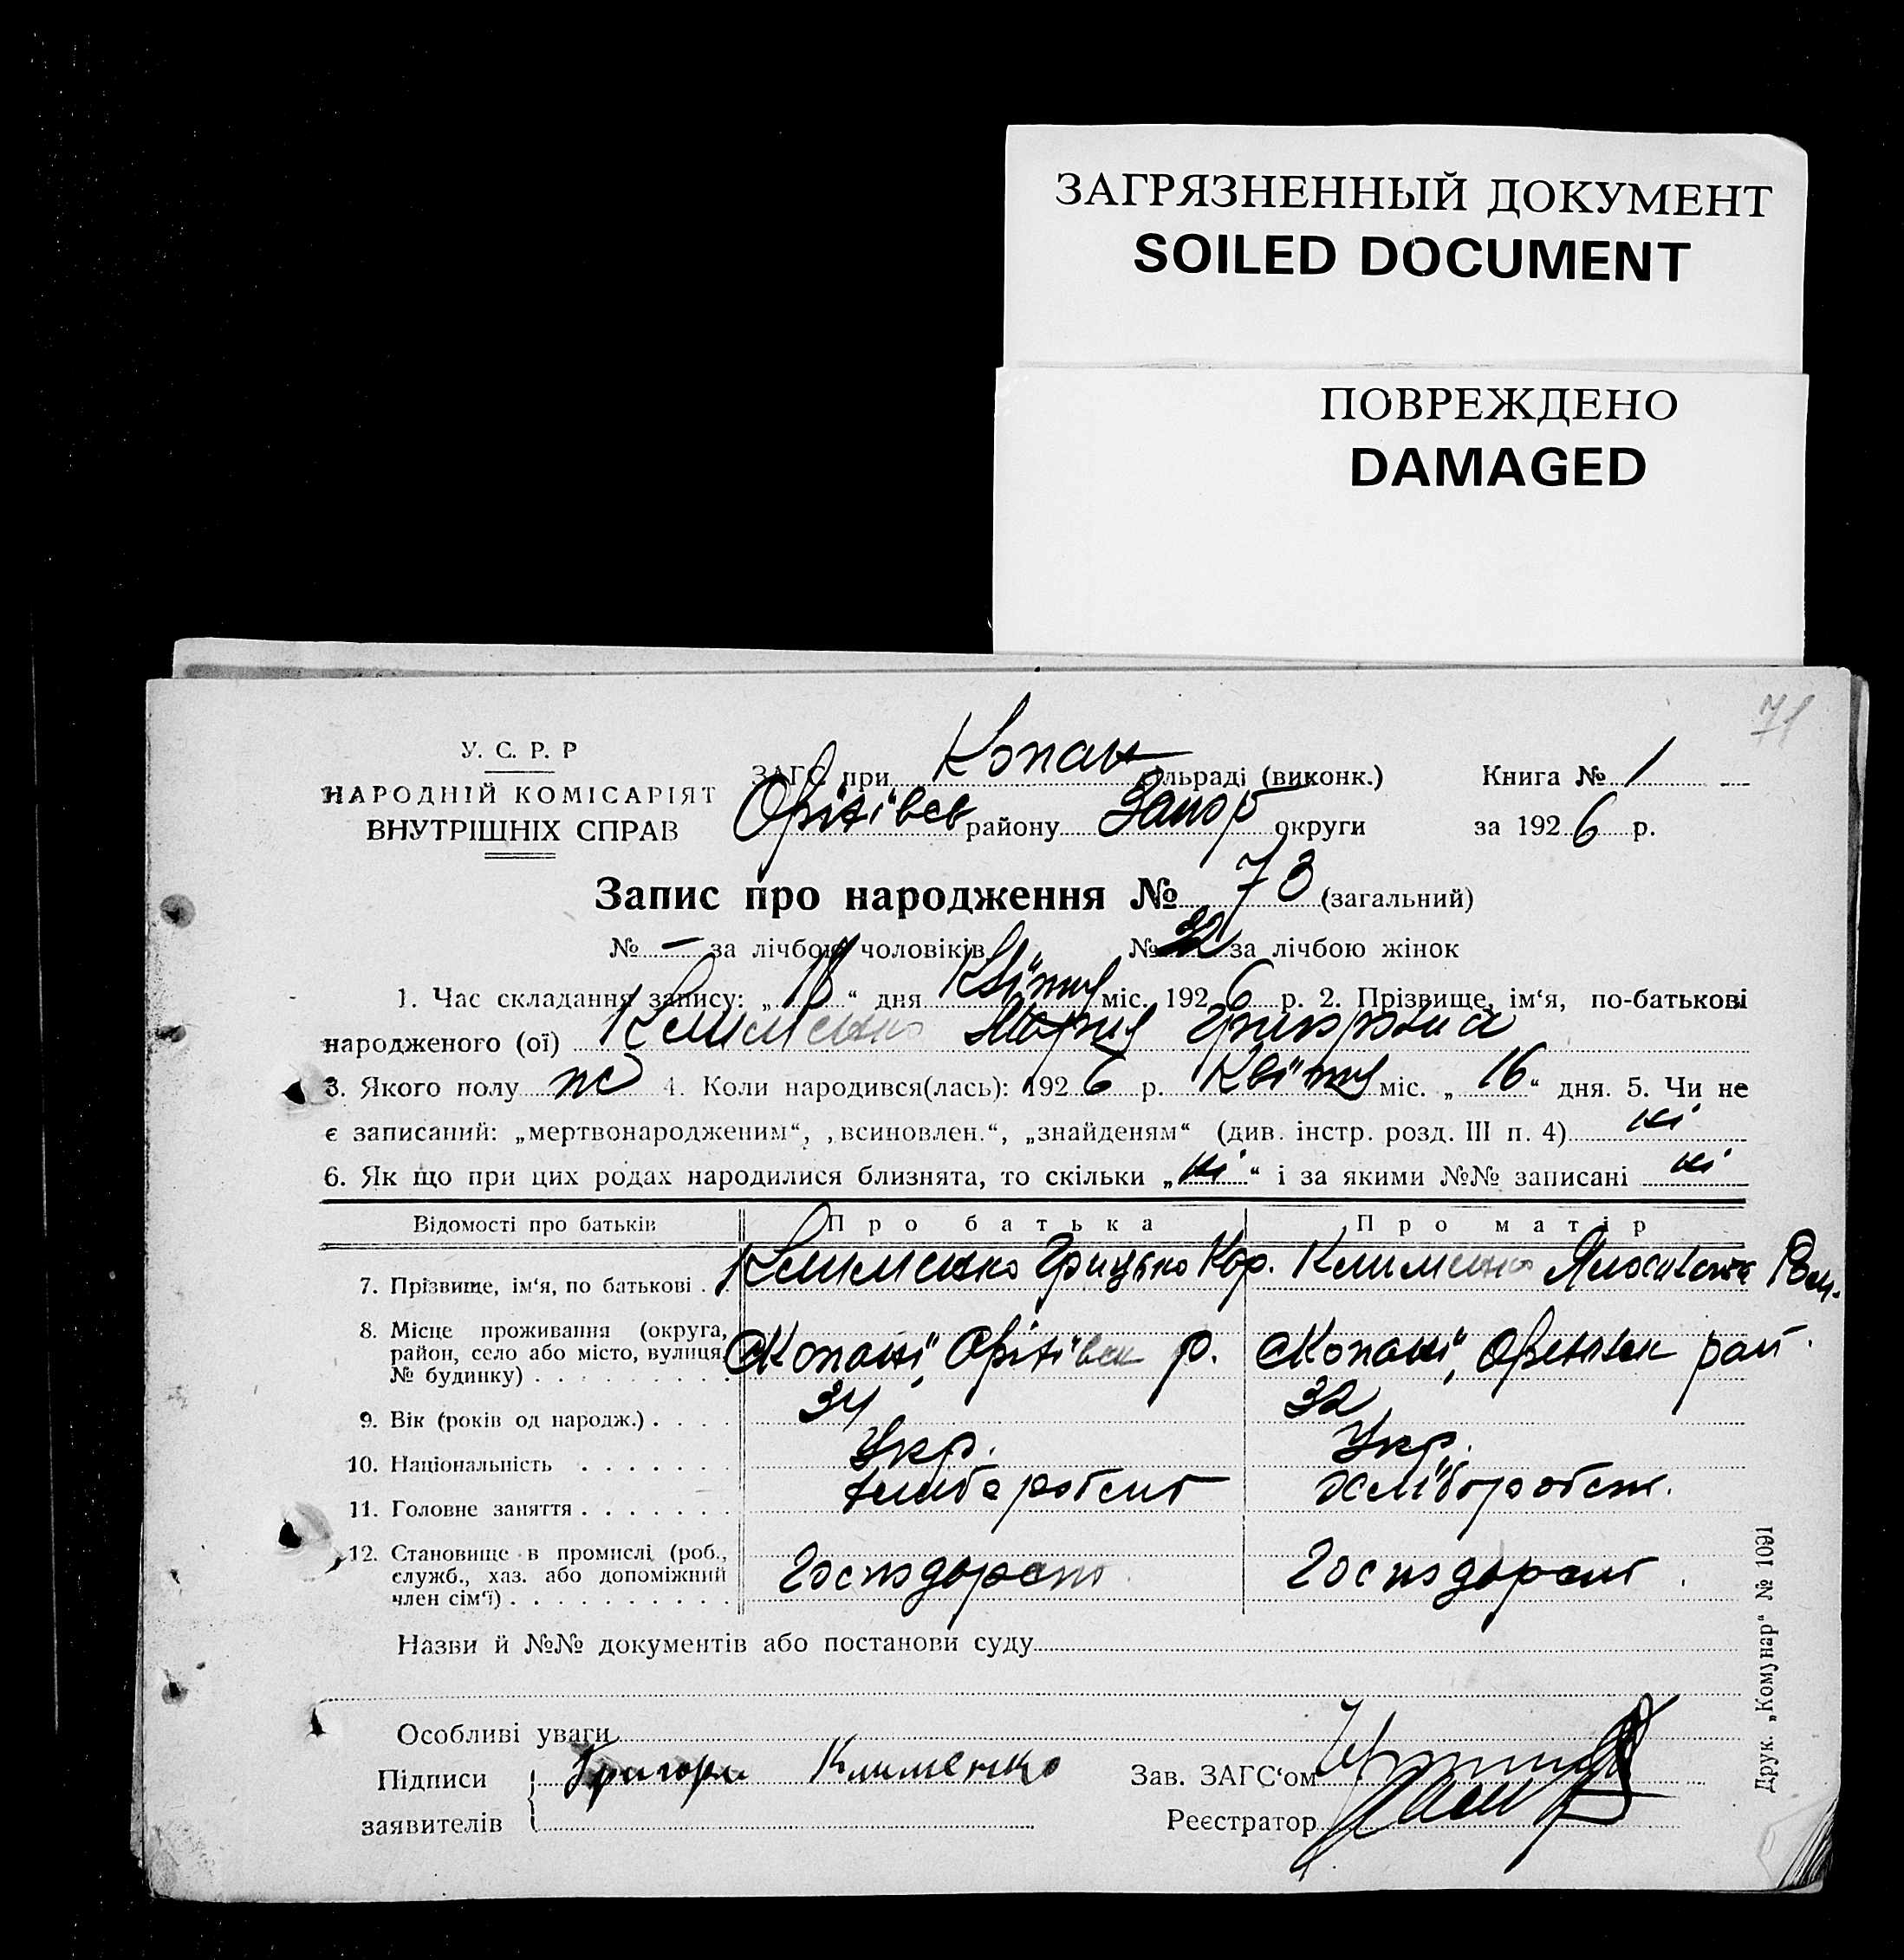 ЗАГРЯЗНЕННЫЙ ДОКУМЕНТ
SOILED DOCUMENT
ПОВРЕЖДЕНО
DAMAGED
71
У. С. Р. Р
НАРОДНІЙ КОМІСАРІЯТ
ВНУТРІШНІХ СПРАВ
ЗАГС при Копан сільраді (виконк.) Книга № 1
Оріхівськ району Запор округи за 1926 р.
Запис про народження № 73 (загальний)
№ — за лічбою чоловіків № 32 за лічбою жінок
1. Час складання запису: „18“ дня Квітня міс. 1926 р. 2. Прізвище, ім‘я, по-батькові
народженого (ої) Клименко Мария
3. Якого полу жс 4. Коли народився(лась): 1926 р. Квітня міс. „16“ дня. 5. Чи не
є записаний: „мертвонародженим“, „всиновлен.“, „знайденям“ (див. інстр. розд. III п. 4) ні
6. Як що при цих родах народилися близнята, то скільки „ні“ і за якими №№ записані ні
Відомості про батьків Про батька Про матір
7. Прізвище, ім‘я, по батькові . . Клименко Грицько Кор. Клименко
8. Місце проживання (округа,
район, село або місто, вулиця,
№ будинку) . . . . . . . . . Копані, Оріхівськ р. Копані, рай.
9. Вік (років од народж.) . . . . 34 32
10. Національність . . . . . . . Укр. Укр.
11. Головне заняття . . . . . . . хлібороб хлібороб
12. Становище в промислі (роб.,
служб., хаз. або допоміжний
член сім‘ї) . . . . . . . . . . Господар Господар
Назви й №№ документів або постанови суду
Особливі уваги
Підписи Григори Клименко Зав. ЗАГС‘ом
заявителів Реєстратор
Друк. „Комунар“ № 1091